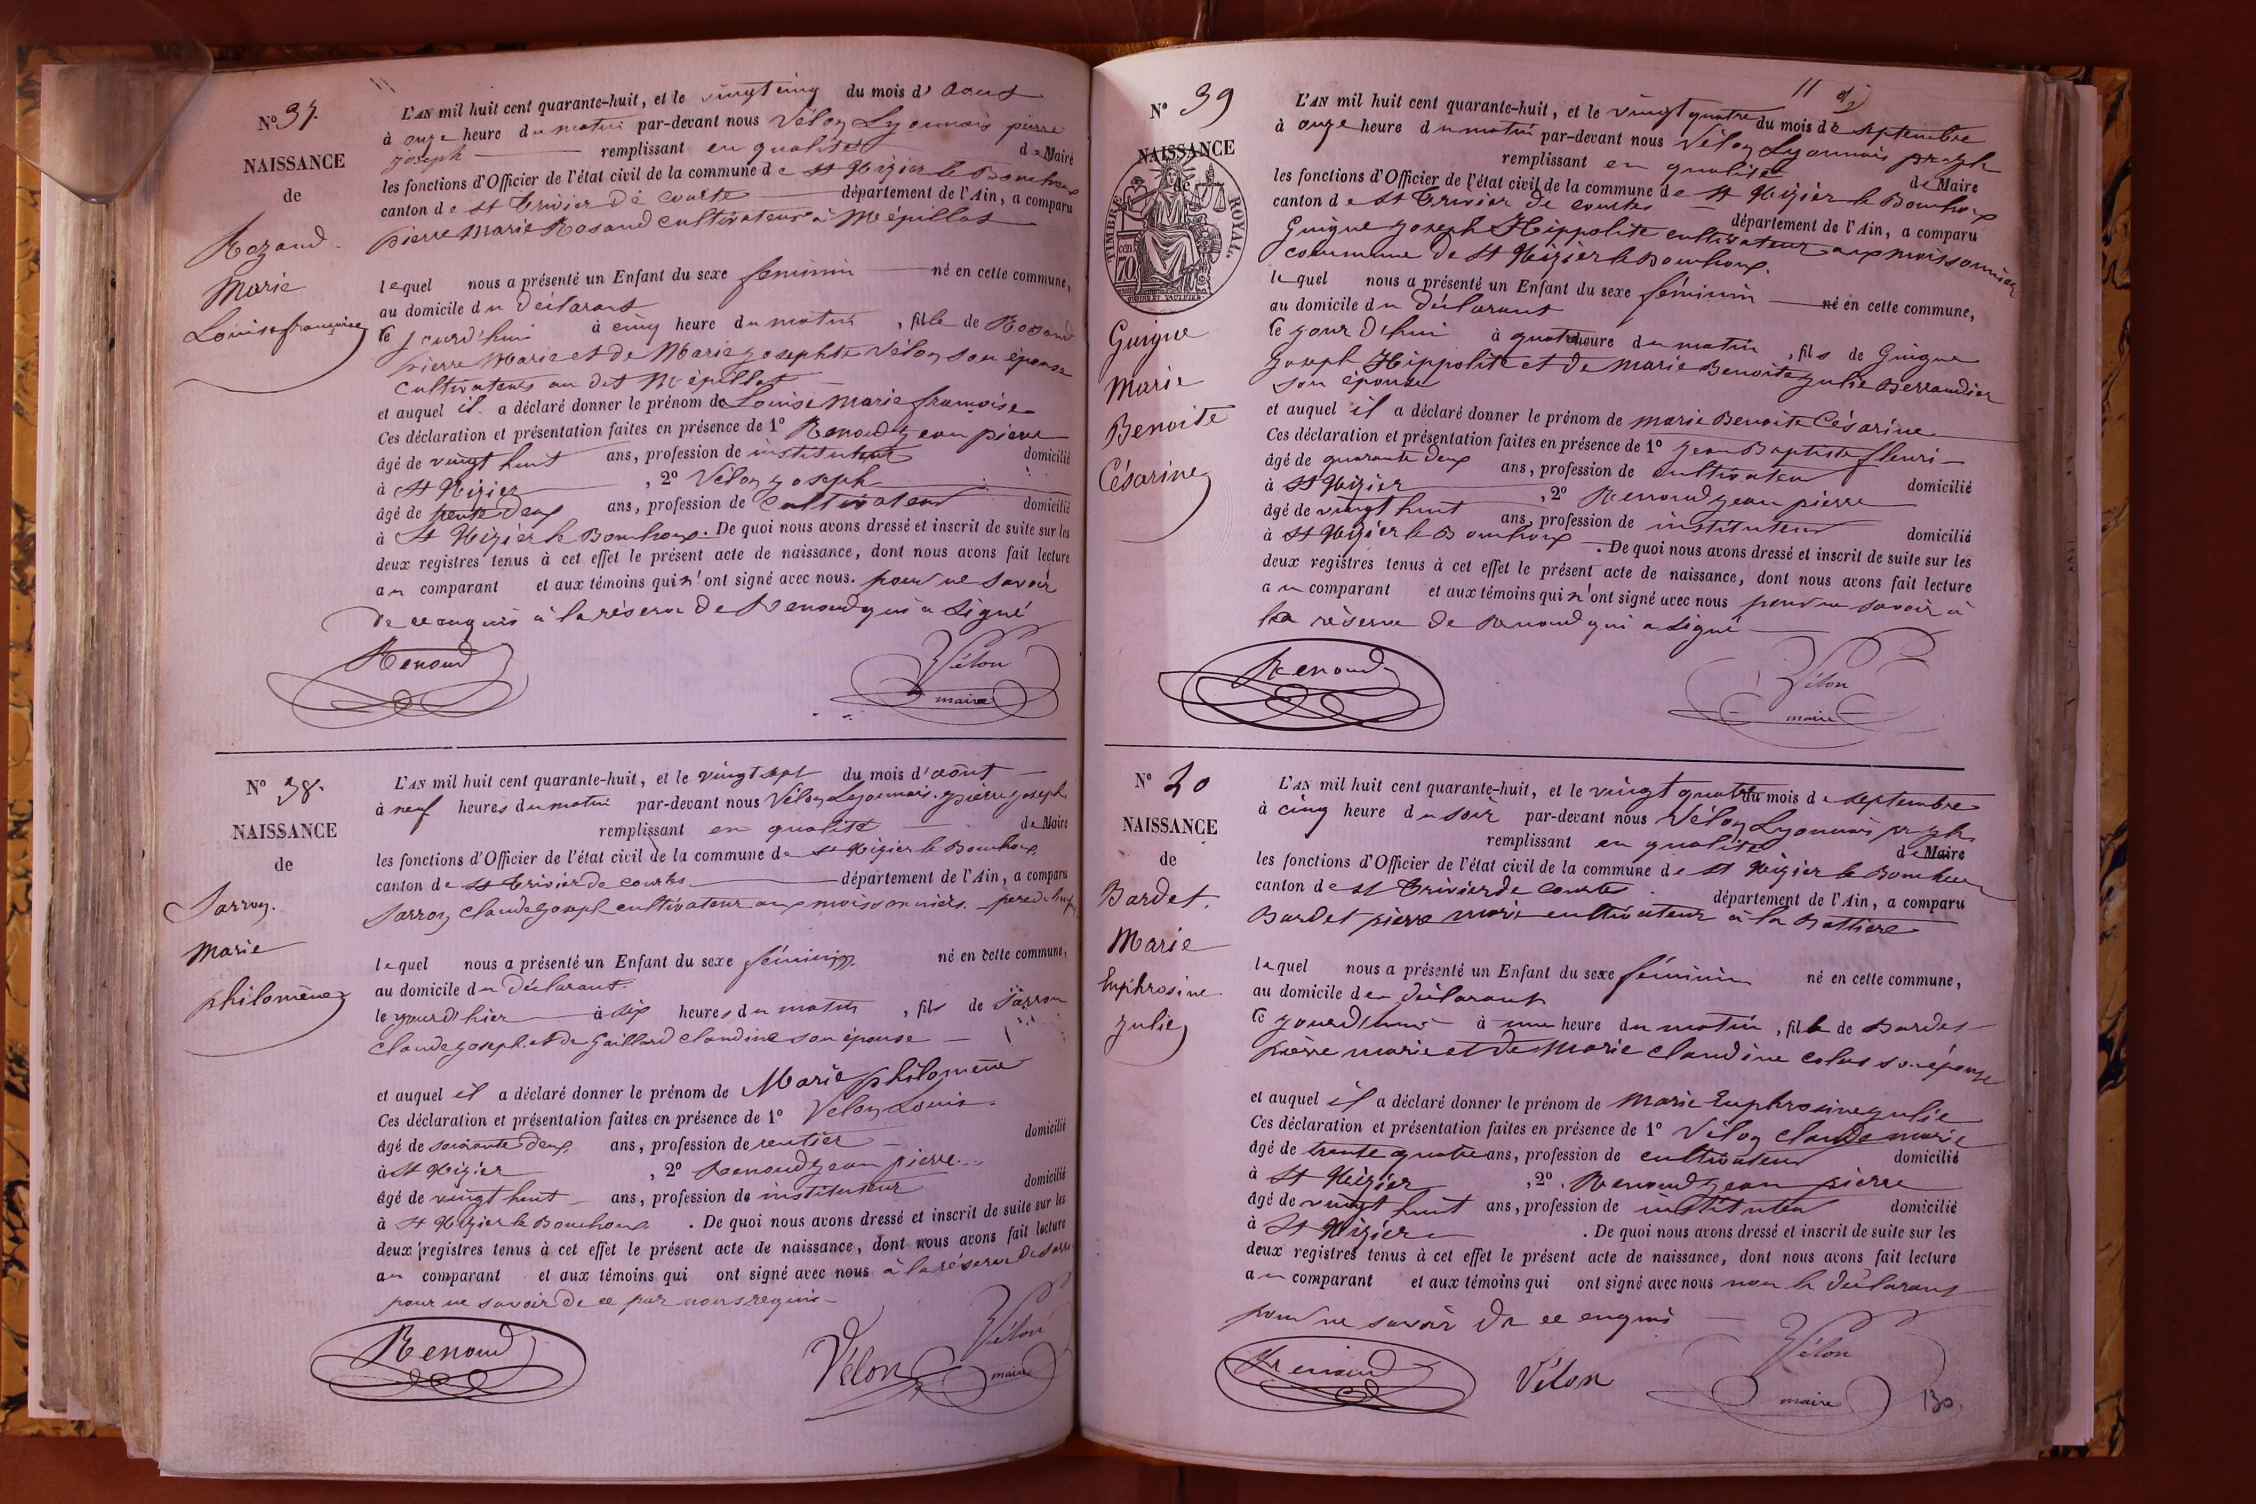 N° 37.
NAISSANCE
de
Rozand
Marie
Louise françoise
L'AN mil huit cent quarante-huit, et le vingt cinq du mois d' Aout
à onze heure du matin par-devant nous Vélon Lyonnais pierre
joseph remplissant en qualité de Maire
les fonctions d'Officier de l'état civil de la commune de St Nizier le Bouchoux
canton de St Trivier de Courte département de l'Ain, a comparu
pierre Marie Rosand cultivateur à Mépillat
lequel nous a présenté un Enfant du sexe feminin né en cette commune,
au domicile du déclarant
le jourd'hui à cinq heure du matin, fille de Rosand
pierre Marie et de Marie josephte Vélon son épouse
cultivateurs au dit Mépillat
et auquel il a déclaré donner le prénom de Louise Marie françoise
Ces déclaration et présentation faites en présence de 1° Renoud jean pierre
âgé de vingt huit ans, profession de instituteur domicilié
à St Nizier, 2° Vélon joseph
âgé de trente deux ans, profession de Cultivateur domicilié
à St Nizier le Bouchoux. De quoi nous avons dressé et inscrit de suite sur les
deux registres tenus à cet effet le présent acte de naissance, dont nous avons fait lecture
au comparant et aux témoins qui n'ont signé avec nous. pour ne savoir
de ce enquis à la réserve de Renoud qui a signé
Renoud
Vélon
maire
N° 38.
NAISSANCE
de
Sarron.
Marie
philomène
L'AN mil huit cent quarante-huit, et le vingt sept du mois d'août
à neuf heures du matin par-devant nous Vélon Lyonnais pierre joseph
remplissant en qualité de Maire
les fonctions d'Officier de l'état civil de la commune de St Nizier le Bouchoux
canton de St Trivier de Courtes département de l'Ain, a comparu
Sarron claude joseph cultivateur aux moissonniers
lequel nous a présenté un Enfant du sexe féminin né en cette commune,
au domicile du déclarant
le jourd'hier à six heures du matin, fils de Sarron
claude joseph et de Gaillard claudine son épouse
et auquel il a déclaré donner le prénom de Marie philomène
Ces déclaration et présentation faites en présence de 1° Vélon Louis
âgé de soixante deux ans, profession de rentier domicilié
à St Nizier, 2° Renoud jean pierre
âgé de vingt huit ans, profession de instituteur domicilié
à St Nizier le Bouchoux. De quoi nous avons dressé et inscrit de suite sur les
deux registres tenus à cet effet le présent acte de naissance, dont nous avons fait lecture
au comparant et aux témoins qui ont signé avec nous à la réserve de Sarron
pour ne savoir de ce par nous requis
Renoud
Vélon
Vélon
maire
11
N° 39
NAISSANCE
de
TIMBRE ROYAL.
70
Guigue
Marie
Benoite
Césarine
L'AN mil huit cent quarante-huit, et le vingt quatre du mois de septembre
à onze heure du matin par-devant nous Vélon Lyonnais
remplissant en qualité de Maire
les fonctions d'Officier de l'état civil de la commune de St Nizier le Bouchoux
canton de St Trivier de courtes département de l'Ain, a comparu
Guigue joseph Hippolite cultivateur aux moissonniers
commune de St Nizier le Bouchoux.
lequel nous a présenté un Enfant du sexe féminin né en cette commune,
au domicile du déclarant
le jour d'hui à quatre heure du matin, fils de Guigue
joseph Hippolite et de Marie Benoite julie Berrandier
son épouse
et auquel il a déclaré donner le prénom de Marie Benoite Césarine
Ces déclaration et présentation faites en présence de 1° jean Baptiste fleuri
âgé de quarante deux ans, profession de cultivateur domicilié
à St Nizier, 2° Renoud jean pierre
âgé de vingt huit ans, profession de instituteur domicilié
à St Nizier le Bouchoux. De quoi nous avons dressé et inscrit de suite sur les
deux registres tenus à cet effet le présent acte de naissance, dont nous avons fait lecture
au comparant et aux témoins qui n'ont signé avec nous pour ne savoir à
la réserve de Renoud qui a signé
Renoud
Vélon
maire
N° 40
NAISSANCE
de
Bardet.
Marie
Euphrosine
julie
L'AN mil huit cent quarante-huit, et le vingt quatre du mois de septembre
à cinq heure du soir par-devant nous Vélon Lyonnais
remplissant en qualité de Maire
les fonctions d'Officier de l'état civil de la commune de St Nizier le Bouchoux
canton de St Trivier de Courtes département de l'Ain, a comparu
Bardet pierre Marie cultivateur à la
lequel nous a présenté un Enfant du sexe féminin né en cette commune,
au domicile de déclarant
le jourd'hui à une heure du matin, fille de Bardet
pierre marie et de Marie claudine colas son épouse
et auquel il a déclaré donner le prénom de Marie Euphrosine julie
Ces déclaration et présentation faites en présence de 1° Vélon Claude marie
âgé de trente quatre ans, profession de cultivateur domicilié
à St Nizier, 2°. Renoud jean pierre
âgé de vingt huit ans, profession de instituteur domicilié
à St Nizier. De quoi nous avons dressé et inscrit de suite sur les
deux registres tenus à cet effet le présent acte de naissance, dont nous avons fait lecture
au comparant et aux témoins qui ont signé avec nous non le déclarant
pour ne savoir de ce enquis
Renoud
Vélon
Vélon
maire
130.